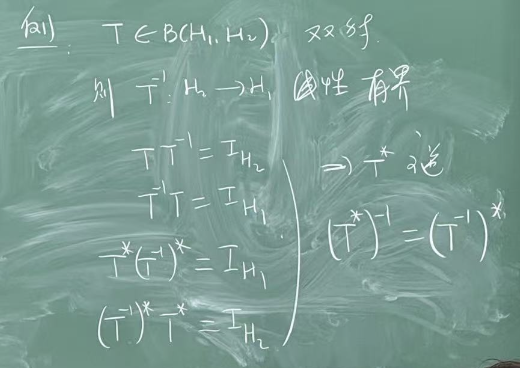 例: T∈B(H₁,H₂) 双射.
则 T⁻¹: H₂→H₁ 线性 有界
TT⁻¹=I_{H₂}
T⁻¹T=I_{H₁}
T*(T⁻¹)*=I_{H₁}
(T⁻¹)*T*=I_{H₂}
⇒ T* 可逆
(T*)⁻¹=(T⁻¹)*